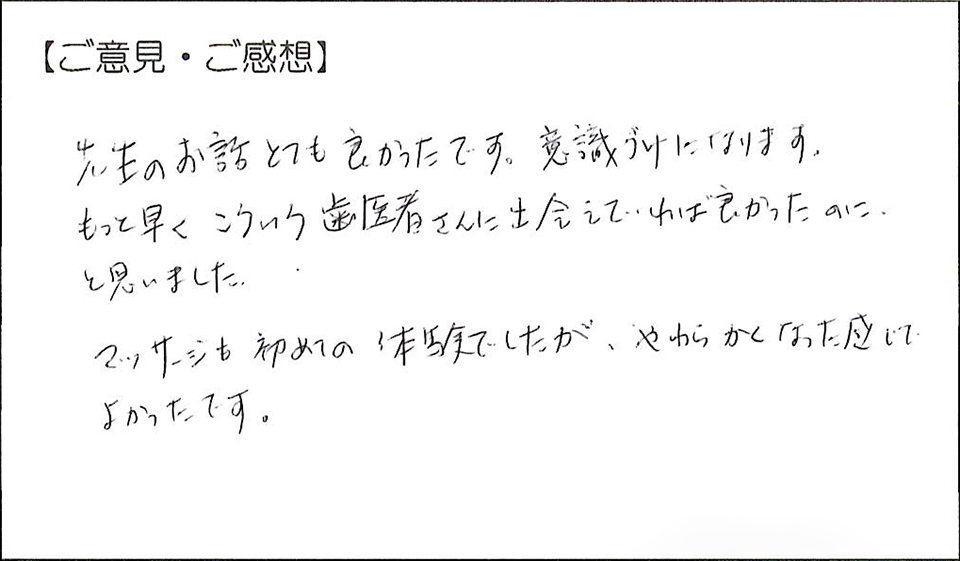 【ご意見・ご感想】
先生のお話とても良かったです。意識づけになります。
もっと早くこういう歯医者さんに出会えていれば良かったのに、
と思いました。
マッサージも初めての体験でしたが、やわらかくなった感じで
よかったです。